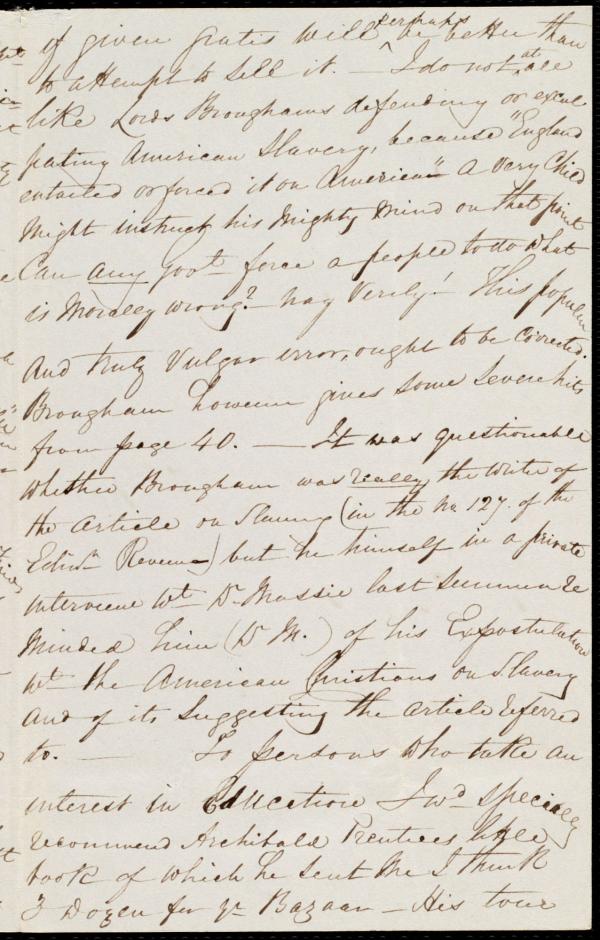 of given gratis will perhaps be better than
to attempt to sell it. — I do not at all
like Lords Broughams defending or excul
pating American Slavery, because "England
entailed or forced it on American" a very Child
might instruct his Mighty Mind on that point
Can any govt force a people to do what
is Morally wrong? nay Verily! This popular
And truly Vulgar error, ought to be Corrected.
Brougham however gives some Severe hits
from page 40. — It was questionable
whether Brougham was really the writer of
the article on Slavery (in the No 127. of the
Edinr Review) but he himself in a private
interview wt Dr Massie last Summer re
minded him (Dr M.) of his Expostulation
wt the American Christians on Slavery
and of its Suggesting the article referred
to. — To persons who take an
interest in Education I wd specially
recommend Archibald Prentices little
book of which he sent me I think
3 Dozen for yr Bazaar — His tour